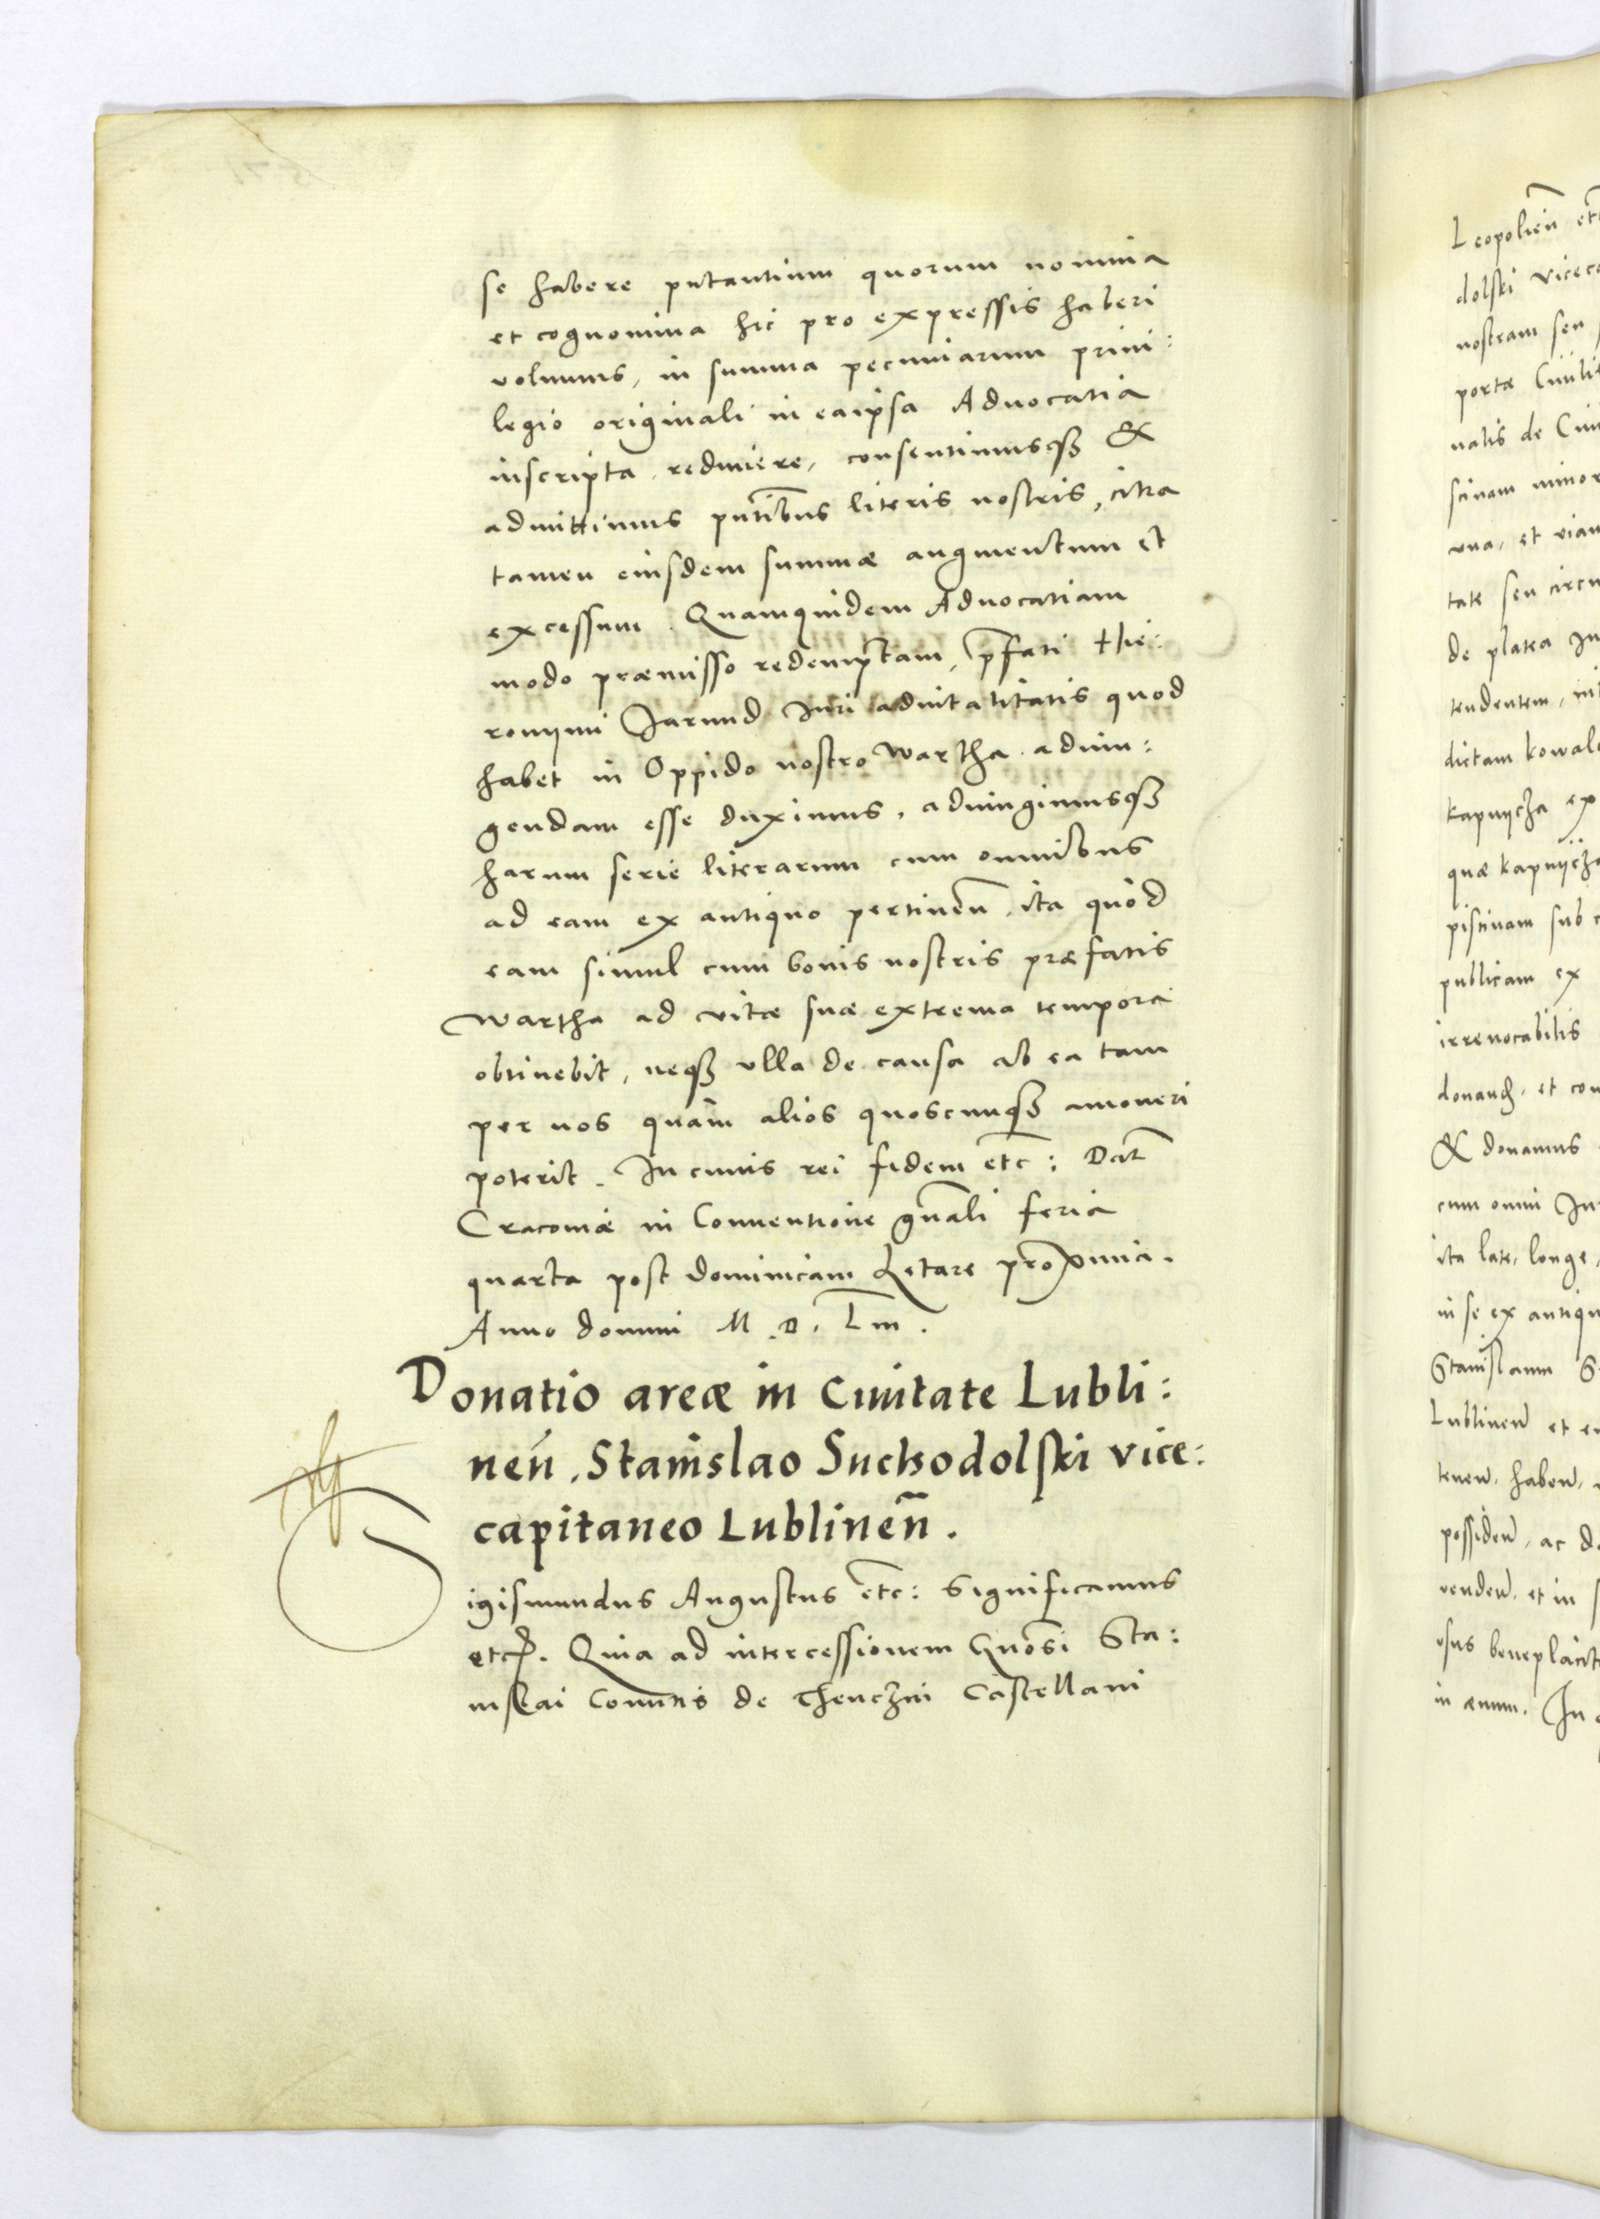 se habere putantium quorum nomina
et cognomina hic pro expressis haberi
volumus, in summa pecuniarum privi:
legio originali in eaipsa Advocatia
inscripta redimere, consentimusq3 &
admittimus pñtibus literis nostris, citra
tamen eiusdem summæ augmentum et
excessum. Quamquidem Advocatiam
modo præmisso redemptam, p̃fati Hie:
ronijmi Jarund Juri advitalitatis quod
habet in Oppido nostro Wartha adiun:
gendam esse duximus, adiungimusq3
harum serie literarum cum omnibus
ad eam ex antiquo pertineñ, ita quòd
eam simul cum bonis nostris præfatis
Wartha ad vitæ suæ extrema tempora
obtinebit, neq3 ulla de causa ab ea tam
per nos quàm alios quoscunq3 amoveri
poterit. In cuius rei fidem etc̃: Dat̃
Cracoviæ in Conventione gñali feria
quarta post dominicam Letare proxima.
Anno domini M. D. Liii.
Donatio areæ in Civitate Lubli:
neñ. Stanislao Suchodolski vice:
capitaneo Lublineñ.
Sigismundus Augustus etc̃: Significamus
etc. Quia ad intercessionem Gñosi Sta:
nislai Comitis de Thenczin Castellani
Leopolieñ etc̃
dolski vicec
nostram seu
portæ Civit
natis de Civi
scinam minor
una, et viam
tate seu circu
de platea
tendentem,
dictam kowal
kapnijcza ex
quæ kapnijcza
piscinam sub
publicam ex
irrevocabilis
donand. et con
& donamus
cum omni Jur
ita late, longe,
in se ex antiqu
Stanislaum S
Lublineñ et
teneñ. habeñ.
possideñ, ac d
vendeñ. et in
usus beneplacit
in ævum. In